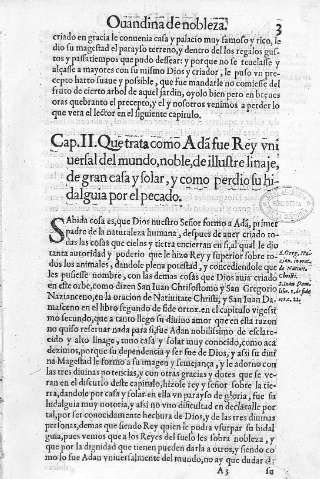 Ouandina de nobleza. 3
criado en gracia le conuenia casa y palacio muy famoso y rico, le
dio su magestad el parayso terreno, y dentro del los regalos gus-
tos y passatiempos que pudo dessear: y porque no se reuelasse y
alçasse a mayores con su mismo Dios y criador, le puso vn pre-
cepto harto suaue y possible, que fue mandarle no comiesse del
fruto de cierto arbol de aquel jardin, oyolo bien pero en breues
oras quebranto el precepto, y el y nosotros venimos a perder lo
que vera el lector en el siguiente capitulo.
Cap. II. Que trata como Adã fue Rey vni
uersal del mundo, noble, de illustre linaje,
de gran casa y solar, y como perdio su hi-
dalguia por el pecado.
SAbida cosa es, que Dios nuestro Señor formo a Adã, primer
padre de la naturaleza humana, despues de auer criado to-
das las cosas que cielos y tierra encierran en si, al qual le dio
tanta autoridad y poderio que le hizo Rey y superior sobre to-
dos los animales, dandole plena potestad, y concediendole que
les pusiesse nombre, con las demas cosas que Dios auia criado
en este orbe, como dizen San Iuan Chrisostomo y San Gregorio
Nazianceno, en la oracion de Natiuitate Christi, y San Iuan Da-
masceno en el libro segundo de fide ortox. en el capitulo vigesi-
mo secundo, que a tanto llego su diuino amor que en esta razon
no quiso reseruar nada para si, fue Adan nobilissimo de esclare-
cido y alto linage, uno casa y solar muy conocido, como aca
dezimos, porque su dependencia y ser fue de Dios, y assi su diui
na Magestad le formo a su imagen y semejança, y le adorno con
las tres diuinas potencias, y con otras gracias y dotes que se ve-
ran en el discurso deste capitulo, hizole rey y señor sobre la tie-
rra, dandole por casa y solar en ella vn parayso de gloria, fue su
hidalguia muy notoria, y assi no vuo dificultad en declararle por
tal, por ser conocidamente hechura de Dios, y de las tres diuinas
personas, demas que siendo Rey quien le podra vsurpar su hidal
guia, pues vemos que a los Reyes del suelo les sobra nobleza, y
que por la dignidad que tienen pueden darla a otros, y siendo co
mo lo fue Adan vniuersalmente del mundo, no ay que dudar de
A 3 su
S. Greg. Na-
cian. in orat.
de Natiuit.
Christi.
S. Iuan Dam.